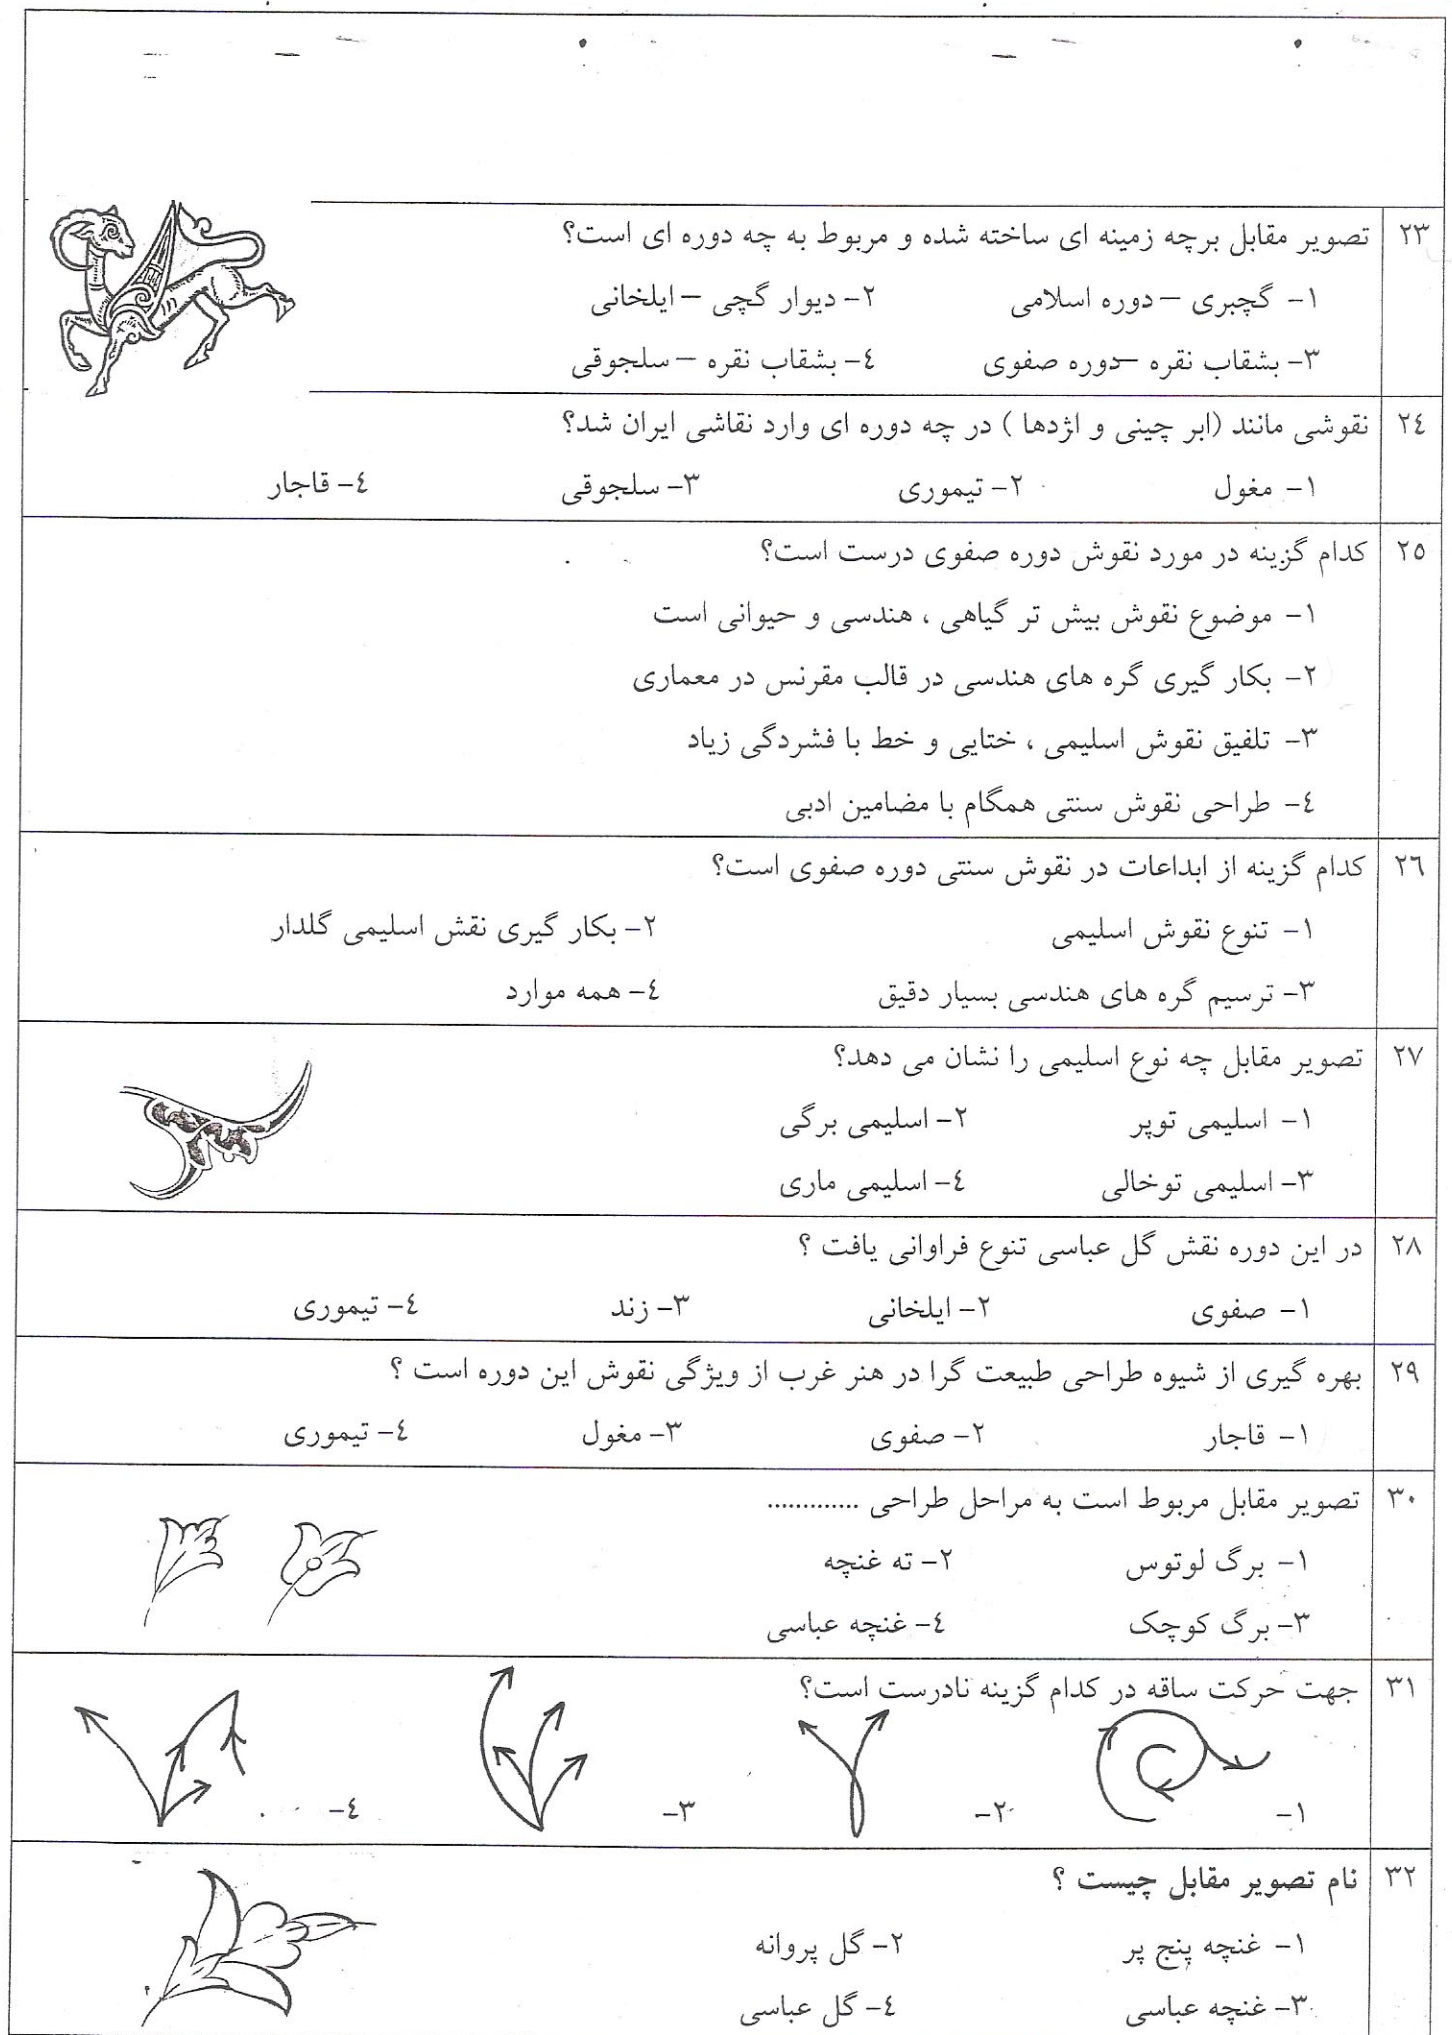 ۲۳ تصویر مقابل برچه زمینه ای ساخته شده و مربوط به چه دوره ای است؟
۱- گچبری – دوره اسلامی ۲- دیوار گچی – ایلخانی
۳- بشقاب نقره –دوره صفوی ٤- بشقاب نقره – سلجوقی
۲٤ نقوشی مانند (ابر چینی و اژدها ) در چه دوره ای وارد نقاشی ایران شد؟
۱- مغول ۲- تیموری ۳- سلجوقی ٤- قاجار
۲٥ کدام گزینه در مورد نقوش دوره صفوی درست است؟
۱- موضوع نقوش بیش تر گیاهی ، هندسی و حیوانی است
۲- بکار گیری گره های هندسی در قالب مقرنس در معماری
۳- تلفیق نقوش اسلیمی ، ختایی و خط با فشردگی زیاد
٤- طراحی نقوش سنتی همگام با مضامین ادبی
۲٦ کدام گزینه از ابداعات در نقوش سنتی دوره صفوی است؟
۱- تنوع نقوش اسلیمی ۲- بکار گیری نقش اسلیمی گلدار
۳- ترسیم گره های هندسی بسیار دقیق ٤- همه موارد
۲۷ تصویر مقابل چه نوع اسلیمی را نشان می دهد؟
۱- اسلیمی توپر ۲- اسلیمی برگی
۳- اسلیمی توخالی ٤- اسلیمی ماری
۲۸ در این دوره نقش گل عباسی تنوع فراوانی یافت ؟
۱- صفوی ۲- ایلخانی ۳- زند ٤- تیموری
۲۹ بهره گیری از شیوه طراحی طبیعت گرا در هنر غرب از ویژگی نقوش این دوره است ؟
۱- قاجار ۲- صفوی ۳- مغول ٤- تیموری
۳۰ تصویر مقابل مربوط است به مراحل طراحی .............
۱- برگ لوتوس ۲- ته غنچه
۳- برگ کوچک ٤- غنچه عباسی
۳۱ جهت حرکت ساقه در کدام گزینه نادرست است؟
۱- ۲- ۳- ٤-
۳۲ نام تصویر مقابل چیست ؟
۱- غنچه پنج پر ۲- گل پروانه
۳- غنچه عباسی ٤- گل عباسی